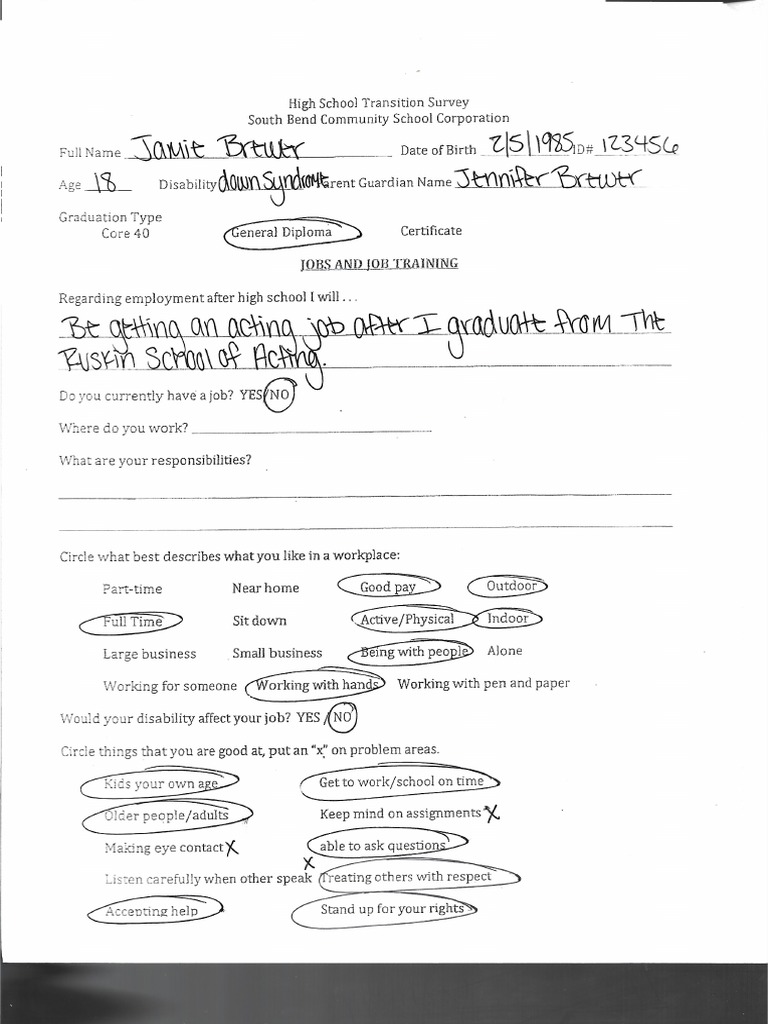 High School Transition Survey
South Bend Community School Corporation
Full Name Jamie Brewer Date of Birth 2/5/1985 ID# 123456
Age 18 Disability down syndrome Parent Guardian Name Jennifer Brewer
Graduation Type
Core 40 General Diploma Certificate
JOBS AND JOB TRAINING
Regarding employment after high school I will . . .
Be getting an acting job after I graduate from The
Ruskin School of Acting.
Do you currently have a job? YES/NO
Where do you work?
What are your responsibilities?
Circle what best describes what you like in a workplace:
Part-time Near home Good pay Outdoor
Full Time Sit down Active/Physical Indoor
Large business Small business Being with people Alone
Working for someone Working with hands Working with pen and paper
Would your disability affect your job? YES /NO
Circle things that you are good at, put an "x" on problem areas.
Kids your own age Get to work/school on time
Older people/adults Keep mind on assignments X
Making eye contact X able to ask questions
Listen carefully when other speak X Treating others with respect
Accepting help Stand up for your rights